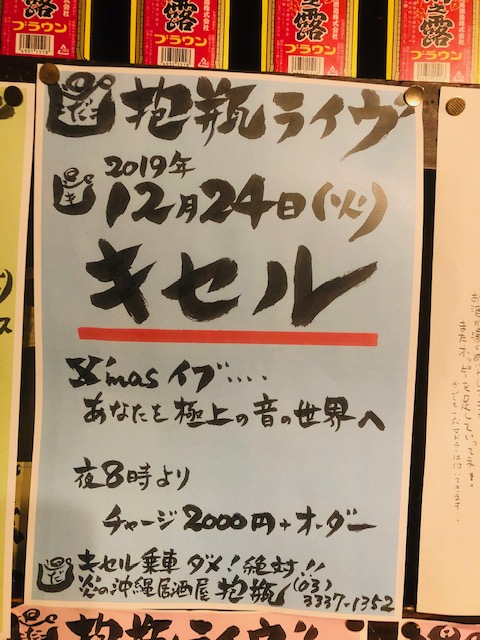 露
ブラウン
露
ブラウン
露
ブラウン
露
ブラウン
抱瓶ライヴ
2019年
12月24日(火)
キセル
X'mas イブ‥‥
あなたを極上の音の世界へ
夜8時より
チャージ2000円+オーダー
キセル乗車ダメ!絶対!!
炎の沖縄居酒屋 抱瓶 (03)
3337-1352
抱瓶ライヴ